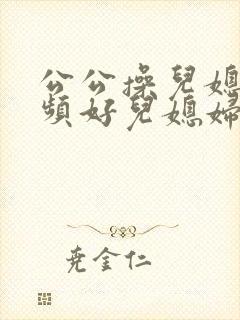 公公操兒媳
頻好兒媳婦
堯金仁